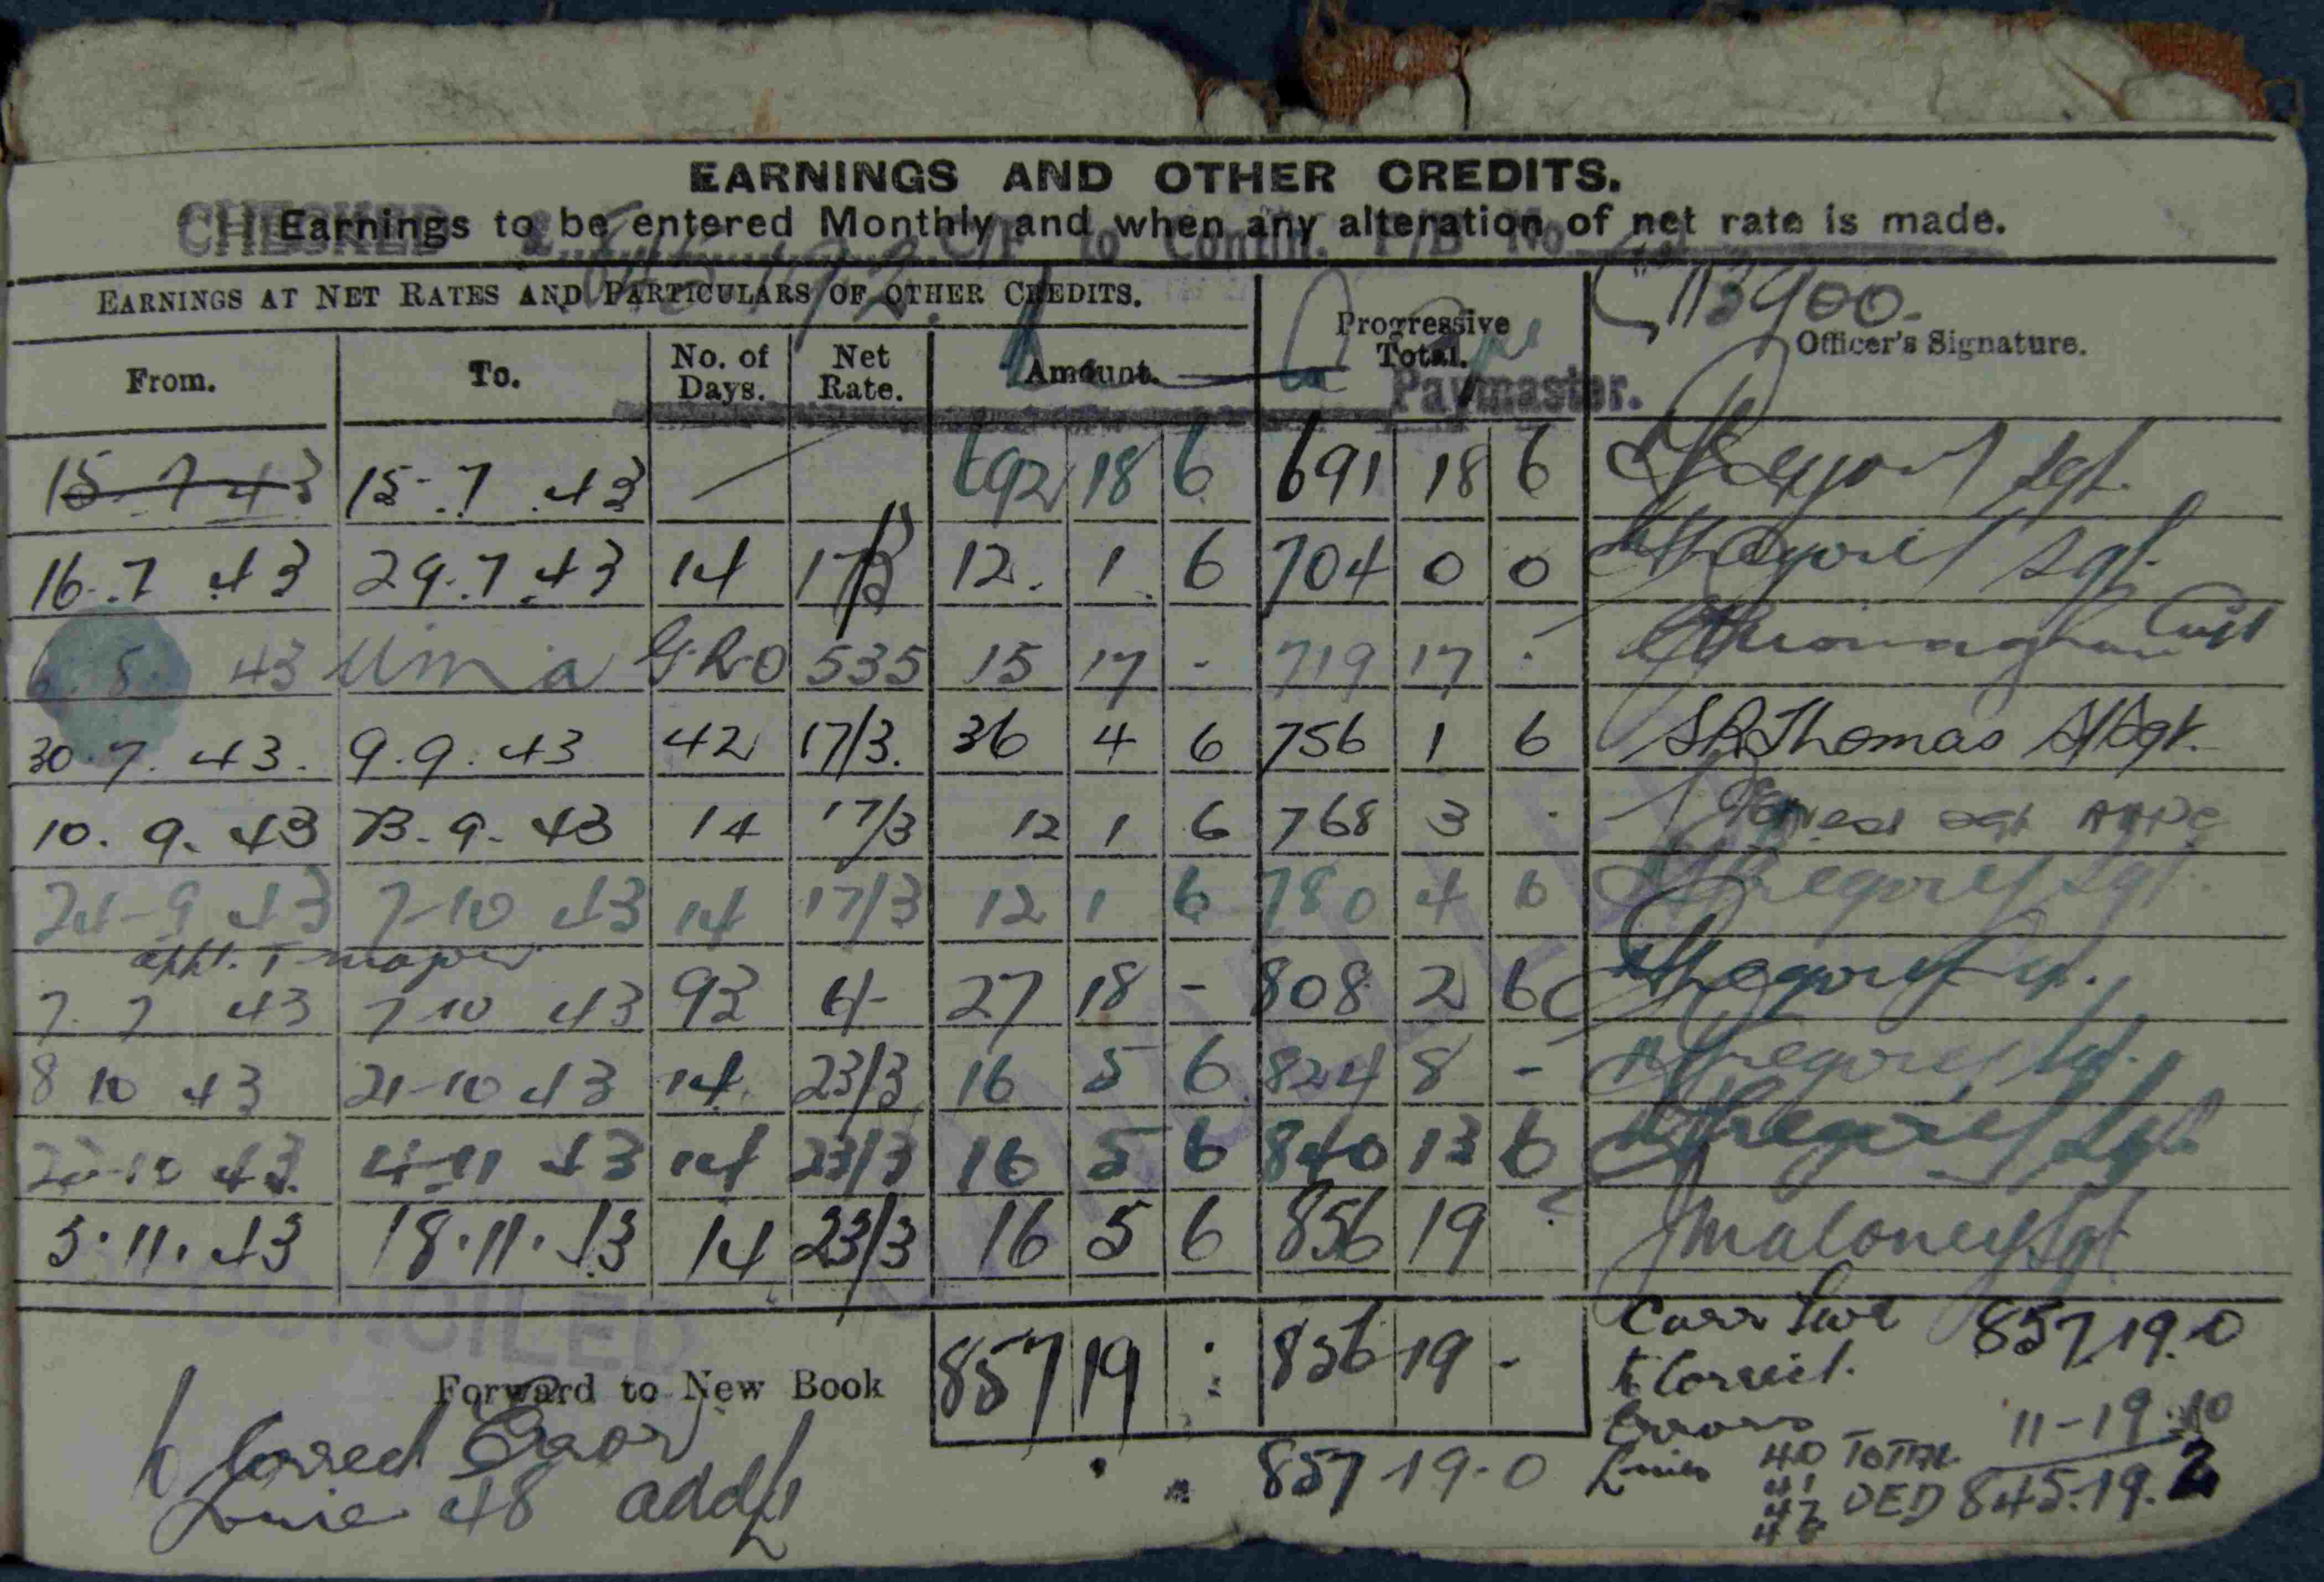 EARNINGS AND OTHER CREDITS.
CHECKED
Earnings to be entered Monthly and when any alteration of net rate is made.
C/F to Contin. P/B No
EARNINGS AT NET RATES AND PARTICULARS OF OTHER CREDITS.
113900.
From. To. No. of Days. Net Rate. Amount. Progressive Total. Officer's Signature.
Paymaster.
15 7 43 15.7.43 692 18 6 691 18 6 Sgt.
16.7 43 29.7.43 14 17/3 12. 1. 6 704 0 0 Sgt.
6. 8. 43 G.R.O 535 15 17 - 719 17 - Capt
30.7.43. 9.9.43 42 17/3. 36 4 6 756 1 6 S.R.Thomas S/Sgt.
10.9.43 23.9.43 14 17/3 12 1 6 768 3 -
24-9 43 7-10 43 14 17/3 12 1 6 780 4 6 Gregory Sgt.
appt. T-major
7 7 43 7 10 43 93 6/- 27 18 - 808 2 6 Gregory
8 10 43 21-10 43 14 23/3 16 5 6 824 8 - Gregory Sgt.
22-10 43. 4-11 43 14 23/3 16 5 6 840 13 6 Gregory Sgt.
5.11.43 18.11.43 14 23/3 16 5 6 856 19 - Maloney Sgt
Forward to New Book 857 19 - 856 19 -
857 19-0
Error
48 add
Carr fwd 857.19.0
to Correct.
Errors 11-19.10
Lines 40 TOTAL
41
47 DED 845.19.2
48